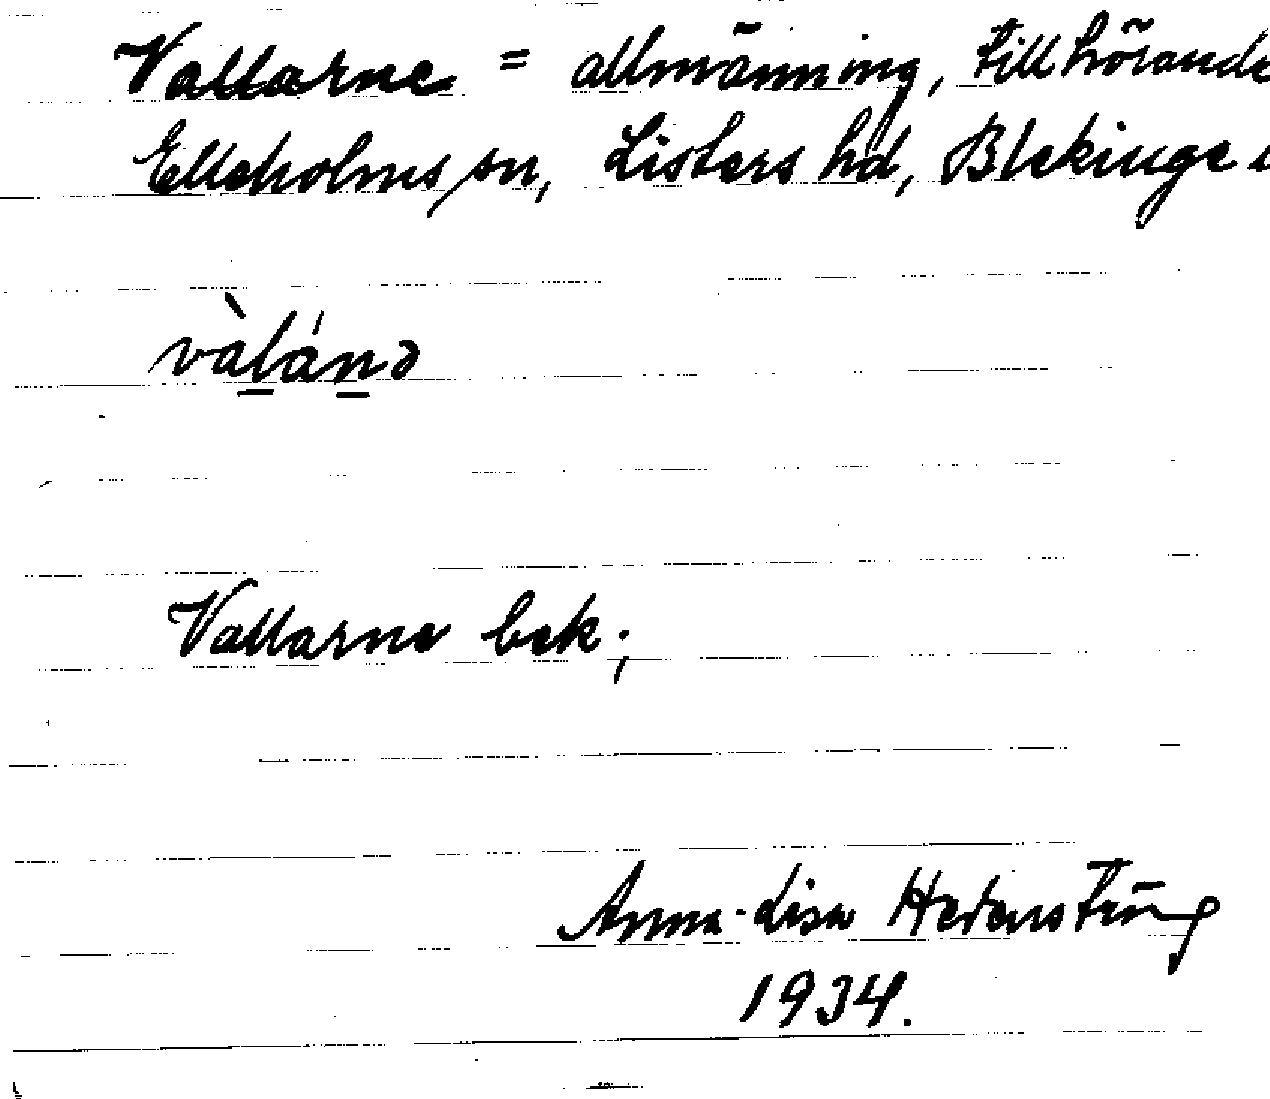 Vallarne = allmänning, tillhörande
Elleholms sn, Listers hd, Blekinge
vàlánə
Vallarne bek;
Anna-Lisa Hedenstüng
1934.